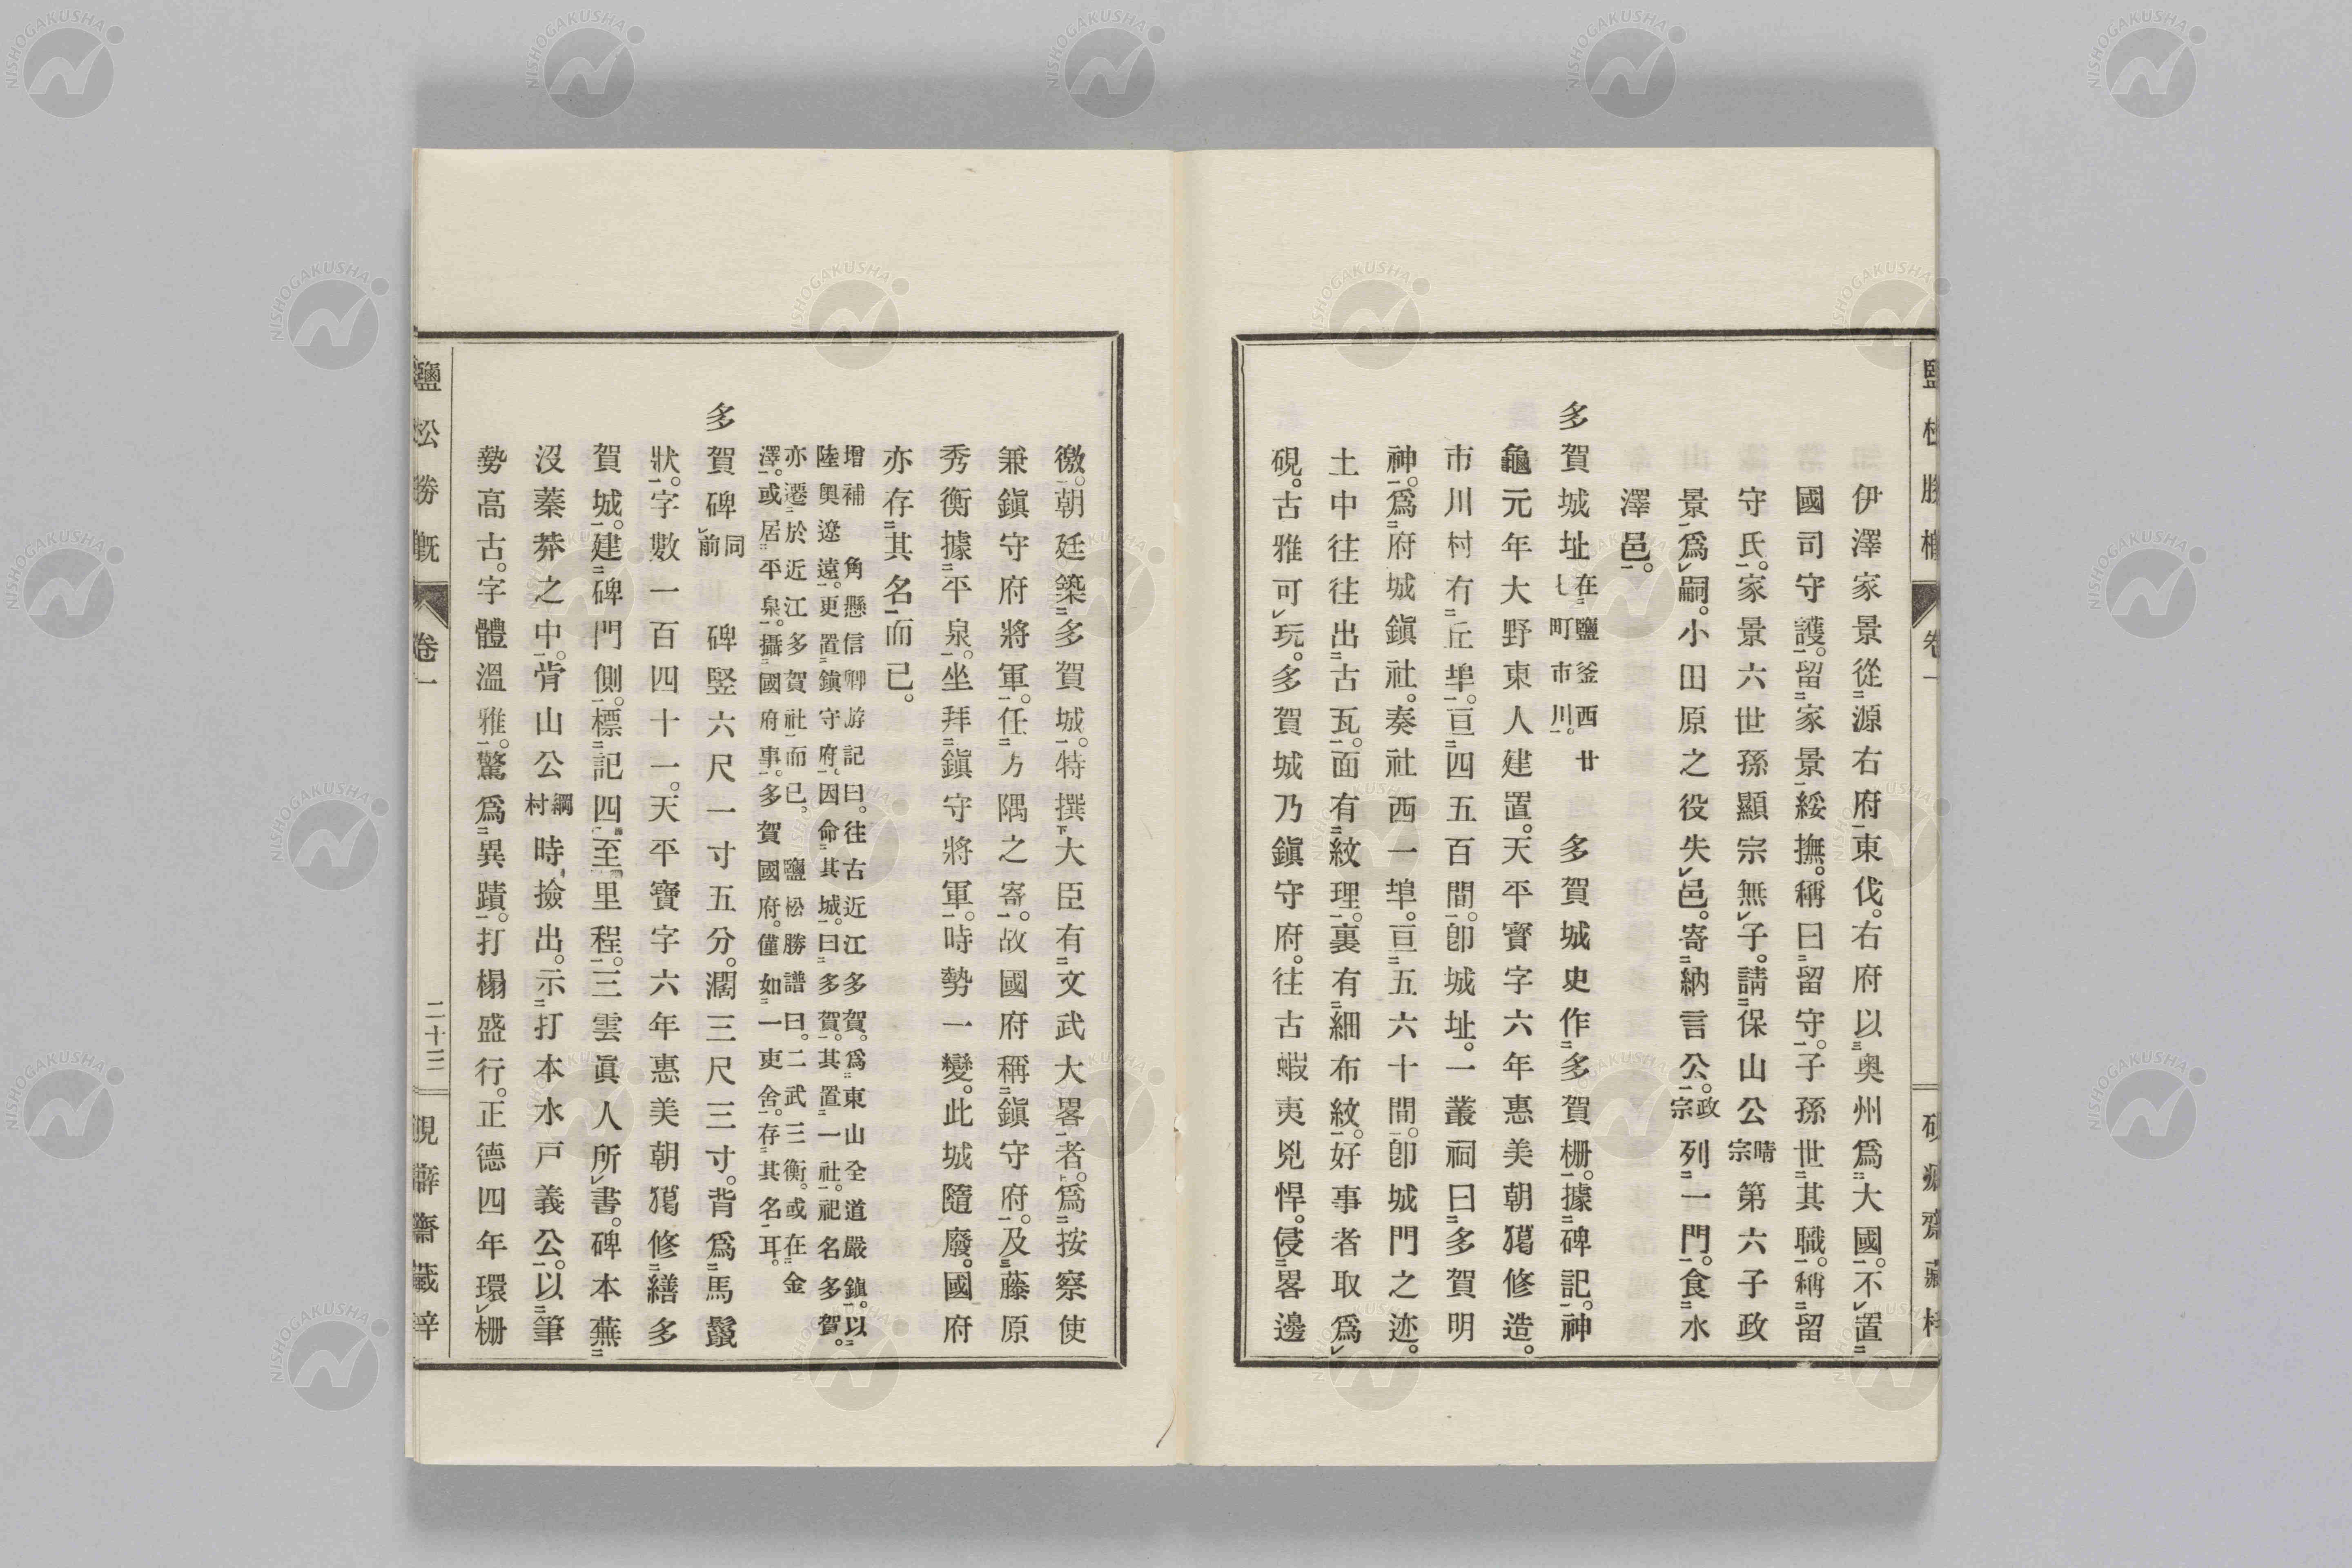 伊澤家景從源右府東伐。右府以奥州爲大國。不置
國司守護。留家景綏撫。稱曰留守。子孫世其職。稱留
守氏。家景六世孫顯宗無子。請保山公晴宗第六子政
景爲嗣。小田原之役失邑。寄納言公。政宗列一門。食水
澤邑。
多賀城址在鹽釜西廿町市川。多賀城史作多賀柵。據碑記。神
龜元年大野東人建置。天平寳字六年惠美朝獦修造。
市川村有丘埠。亘四五百間。卽城址。一叢祠曰多賀明
神。爲府城鎭社。奏社西一埠。亘五六十間。卽城門之迹。
土中往往出古瓦。面有紋理。裏有細布紋。好事者取爲
硯。古雅可玩。多賀城乃鎭守府。往古蝦夷兇悍。侵畧邊
徼。朝廷築多賀城。特撰大臣有文武大畧者。爲按察使
兼鎭守府將軍。任方隅之寄。故國府稱鎭守府。及藤原
秀衡據平泉。坐拜鎭守將軍。時勢一變。此城隨廢。國府
亦存其名而已。
增補 角懸信卿游記曰。往古近江多賀。爲東山全道嚴鎭。以
陸奧遼遠。更置鎭守府。因命其城。曰多賀。其置一社。祀名多賀。
亦遷於近江多賀社而已。 鹽松勝譜曰。二武三衡。或在金
澤。或居平泉。攝國府事。多賀國府。僅如一吏舍。存其名耳。
多賀碑同前 碑竪六尺一寸五分。濶三尺三寸。背爲馬鬣
狀。字數一百四十一。天平寳字六年惠美朝獦修繕多
賀城。建碑門側。標記四至里程。三雲眞人所書。碑本蕪
沒蓁莽之中。肯山公綱村時撿出。示打本水戸義公。以筆
勢高古。字體溫雅。驚爲異蹟。打榻盛行。正德四年環柵
鹽松勝概
卷一
二十三